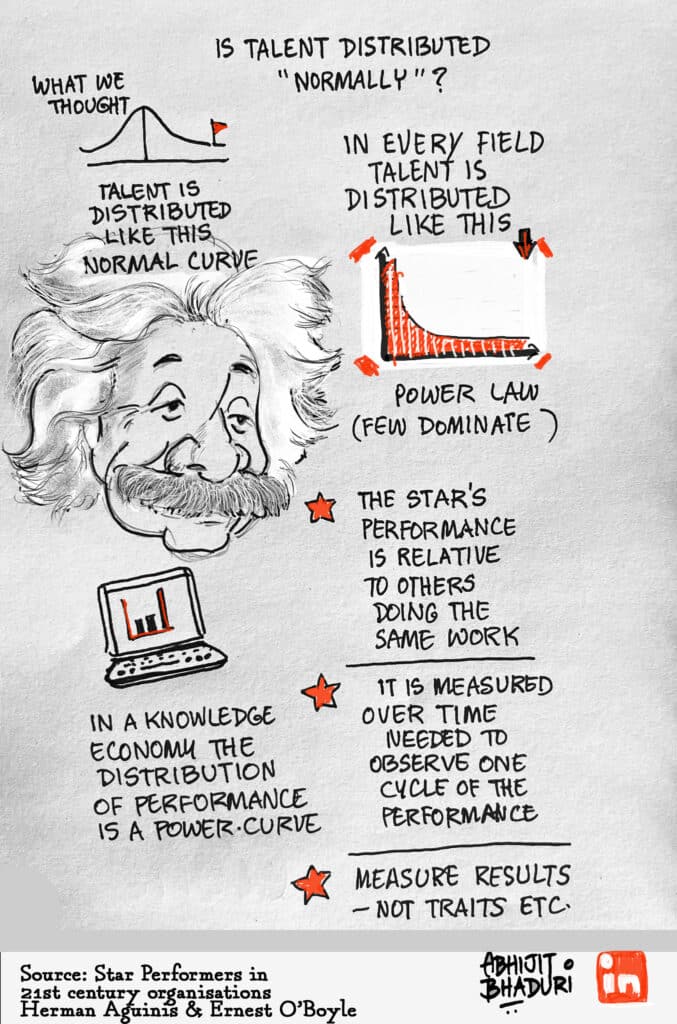 IS TALENT DISTRIBUTED
"NORMALLY"?
WHAT WE
THOUGHT
TALENT IS
DISTRIBUTED
LIKE THIS
NORMAL CURVE
IN EVERY FIELD
TALENT IS
DISTRIBUTED
LIKE THIS
POWER LAW
(FEW DOMINATE)
THE STAR'S
PERFORMANCE
IS RELATIVE
TO OTHERS
DOING THE
SAME WORK
IT IS MEASURED
OVER TIME
NEEDED TO
OBSERVE ONE
CYCLE OF THE
PERFORMANCE
MEASURE RESULTS
- NOT TRAITS ETC.
IN A KNOWLEDGE
ECONOMY THE
DISTRIBUTION
OF PERFORMANCE
IS A POWER·CURVE
Source: Star Performers in
21st century organisations
Herman Aguinis & Ernest O'Boyle
ABHIJIT
BHADURI
in